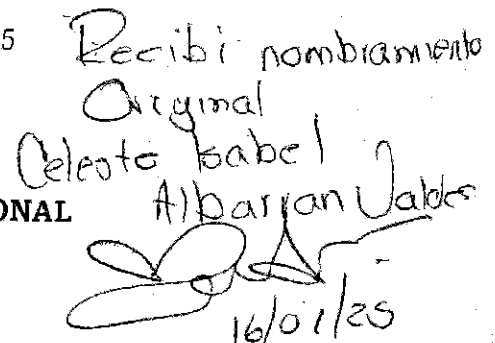 5
Recibi nombramiento
Original
Celeste Isabel
ONAL Albarran Valdes
16/01/25